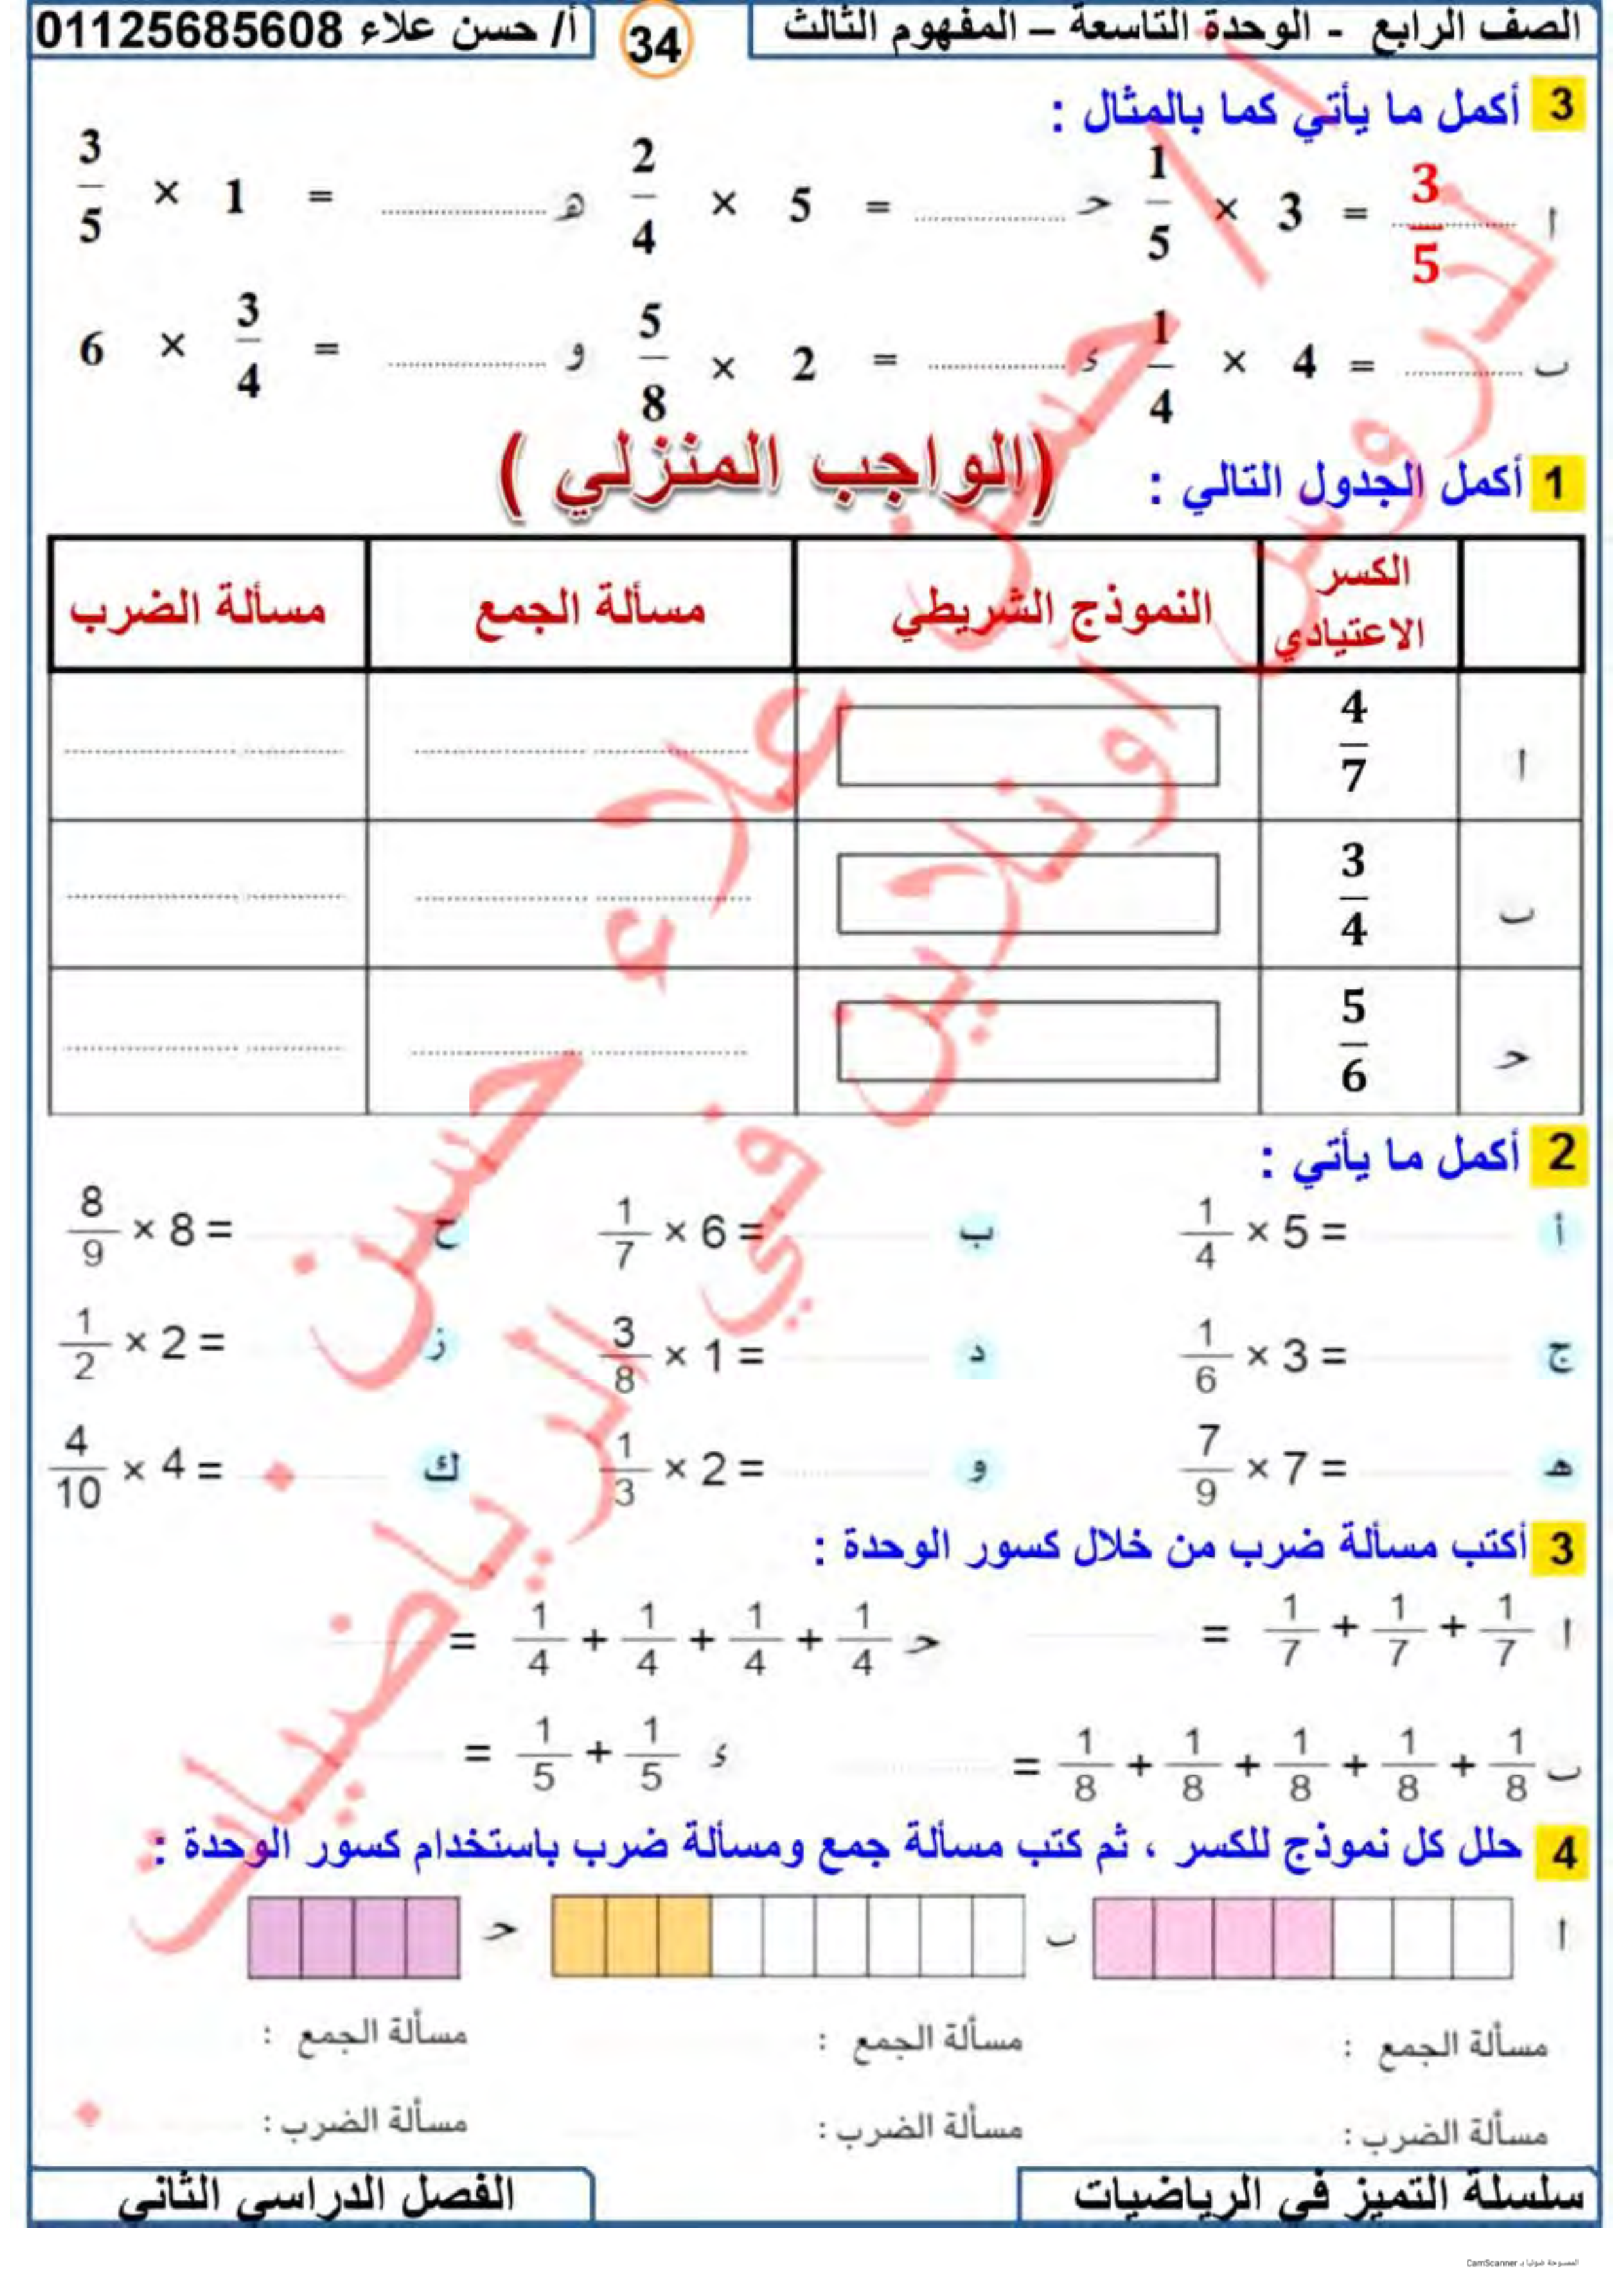 الصف الرابع - الوحدة التاسعة – المفهوم الثالث 34 أ/ حسن علاء 01125685608
3 أكمل ما يأتي كما بالمثال :
ا 1/5 × 3 = 3/5 حـ 2/4 × 5 = ........ هـ 3/5 × 1 = ........
ب 1/4 × 4 = ........ ء 5/8 × 2 = ........ و 6 × 3/4 = ........
1 أكمل الجدول التالي : (الواجب المنزلي )
الكسر الاعتيادي النموذج الشريطي مسألة الجمع مسألة الضرب
ا 4/7
ب 3/4
حـ 5/6
2 أكمل ما يأتي :
أ 1/4 × 5 = ب 1/7 × 6 = ح 8/9 × 8 =
ج 1/6 × 3 = د 3/8 × 1 = ز 1/2 × 2 =
هـ 7/9 × 7 = و 1/3 × 2 = ك 4/10 × 4 =
3 أكتب مسألة ضرب من خلال كسور الوحدة :
ا 1/7 + 1/7 + 1/7 = حـ 1/4 + 1/4 + 1/4 + 1/4 =
ب 1/8 + 1/8 + 1/8 + 1/8 + 1/8 = ء 1/5 + 1/5 =
4 حلل كل نموذج للكسر ، ثم كتب مسألة جمع ومسألة ضرب باستخدام كسور الوحدة :
ا ب حـ
مسألة الجمع : مسألة الجمع : مسألة الجمع :
مسألة الضرب : مسألة الضرب : مسألة الضرب :
سلسلة التميز في الرياضيات الفصل الدراسي الثاني
أ / حسن علاء حسن
دروس أونلاين في الرياضيات
الممسوحة ضوئيا بـ CamScanner